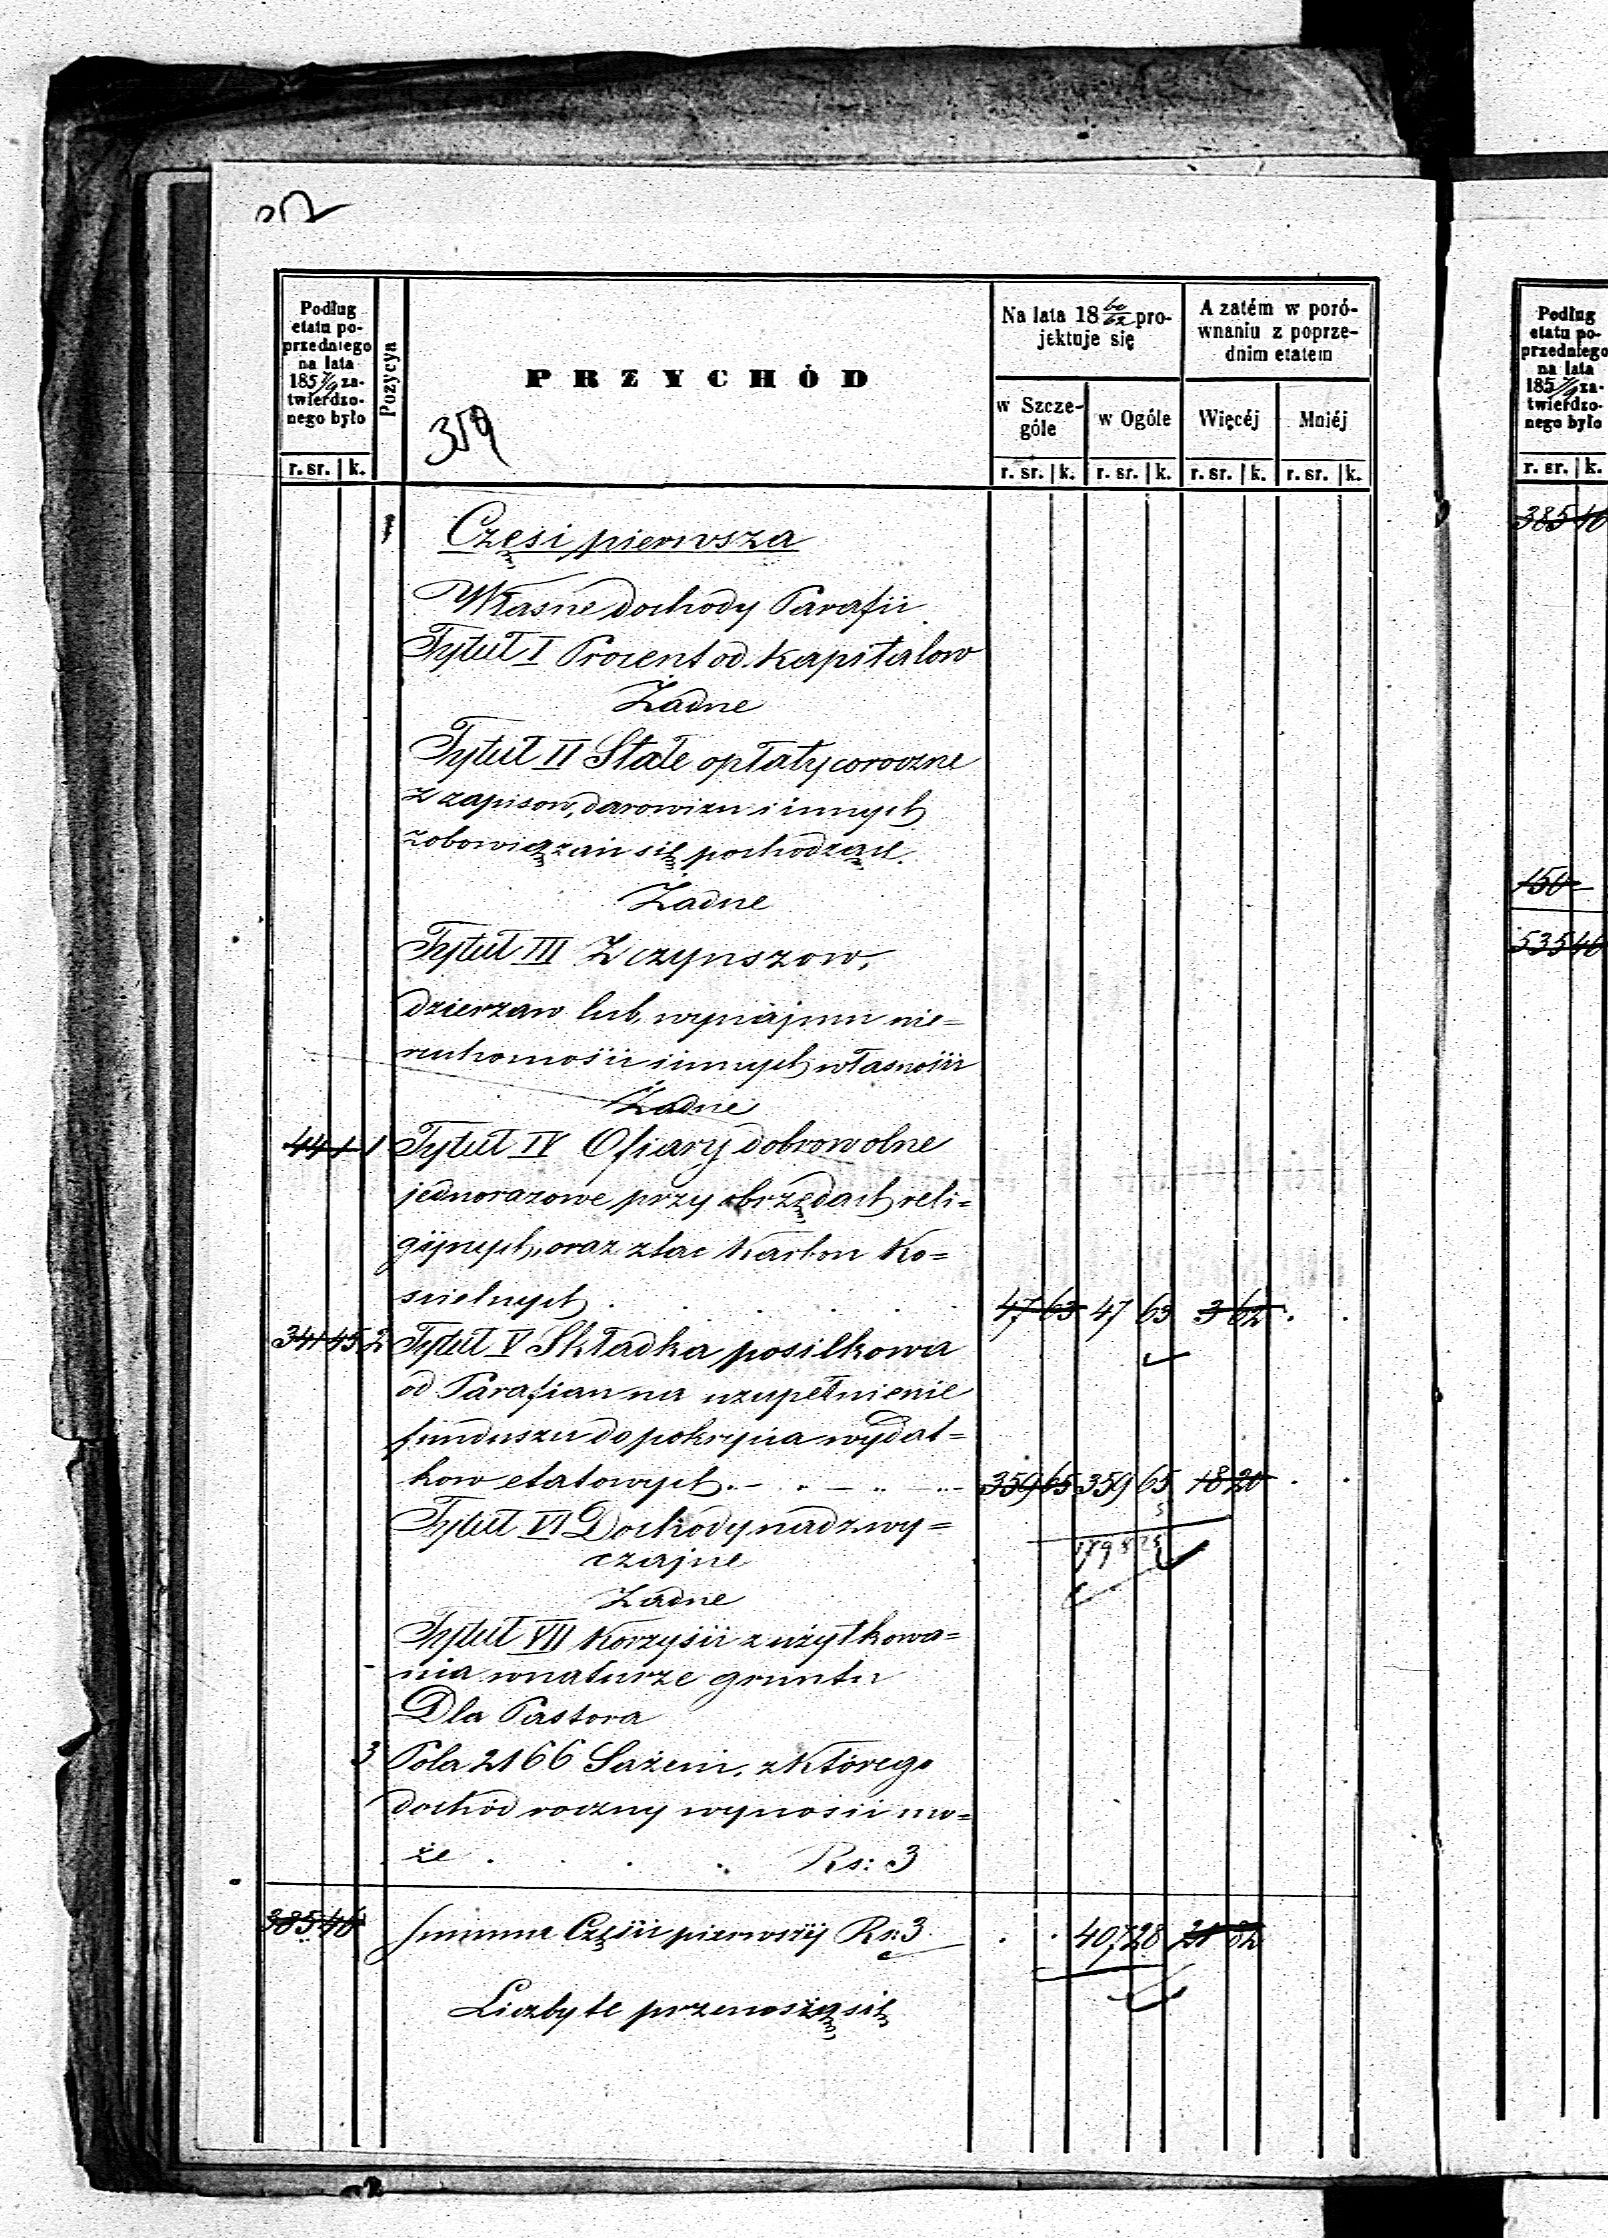 Podług
etatu po-
przedniego
na lata
185 7/9 za-
twierdzo-
nego było
r. sr. k.
Pozycya
PRZYCHÓD
359
Na lata 18 60/62 pro-
jektuje się
w Szcze-
góle
w Ogóle
r. sr. k. r. sr. k.
A zatém w poró-
wnaniu z poprze-
dnim etatem
Więcéj Mniéj
r. sr. k. r. sr. k.
Częsi pierwsza
Własne dochody Parafii
Tytuł I Procent od Kapitalow
Żadne
Tytuł II Stałe opłaty coroczne
z zapisow, darowizn i innych
zobowiązań się pochodzące.
Żadne
Tytuł III Z czynszow,
dzierzaw lub wynajmu nie=
ruchomości i innych własności
Żadne
44 1 1 Tytuł IV Ofiary dobrowolne
jednorazowe przy obrzędach reli=
gijnych, oraz z tac Karbon Ko=
scielnych . . . . . 47 63 47 63 3 62 . .
341 45 2 Tytuł V Składka posilkowa
od Parafian na uzupełnienie
funduszu do pokrycia wydat=
kow etatowych 359 65 359 65 18 20 . .
Tytuł VI Dochody nadzwy=
czajne
Żadne
Tytuł VII Korzyści z użytkowa=
nia w naturze gruntu
Dla Pastora
3 Pola 2166 Sażeni, z Którego
dochód roczny wynosii mo=
że . . . Rs: 3
385 46 Summa Części pierwszéj Rs: 3 . . 407 28 21 82
Liczby te przenoszą się
Podług
etatu po-
przedniego
na lata
185 7/9 za-
twierdzo-
nego było
r. sr. k.
385 46
150
535 46